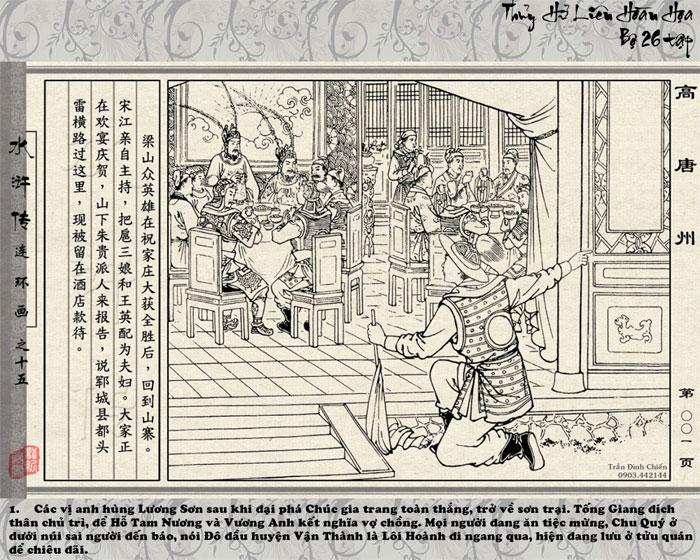 Thủy Hử Liên Hoàn Họa
Bộ 26 tập
高唐州
第〇〇一页
梁山众英雄在祝家庄大获全胜后，回到山寨。
宋江亲自主持，把扈三娘和王英配为夫妇。大家正
在欢宴庆贺，山下朱贵派人来报告，说郓城县都头
雷横路过这里，现被留在酒店款待。
水浒传连环画之十五
Trần Đình Chiến
0903.442144
1. Các vị anh hùng Lương Sơn sau khi đại phá Chúc gia trang toàn thắng, trở về sơn trại. Tống Giang đích
thân chủ trì, để Hỗ Tam Nương và Vương Anh kết nghĩa vợ chồng. Mọi người đang ăn tiệc mừng, Chu Quý ở
dưới núi sai người đến báo, nói Đô đầu huyện Vận Thành là Lôi Hoành đi ngang qua, hiện đang lưu ở tửu quán
để chiêu đãi.